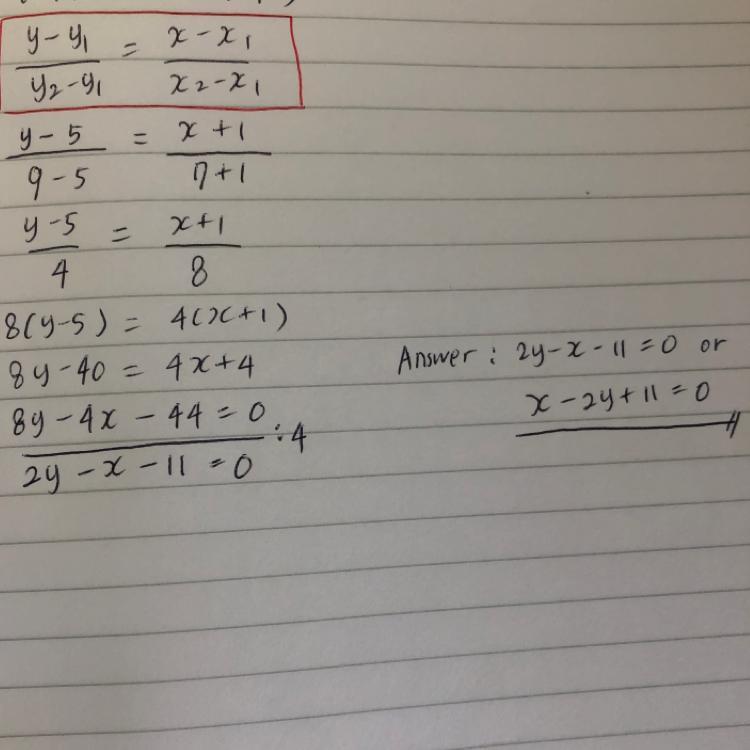 y-y₁/y₂-y₁ = x-x₁/x₂-x₁
y-5/9-5 = x+1/7+1
y-5/4 = x+1/8
8(y-5) = 4(x+1)
8y-40 = 4x+4
8y-4x-44=0
:4
2y-x-11=0
Answer: 2y-x-11=0 or
x-2y+11=0